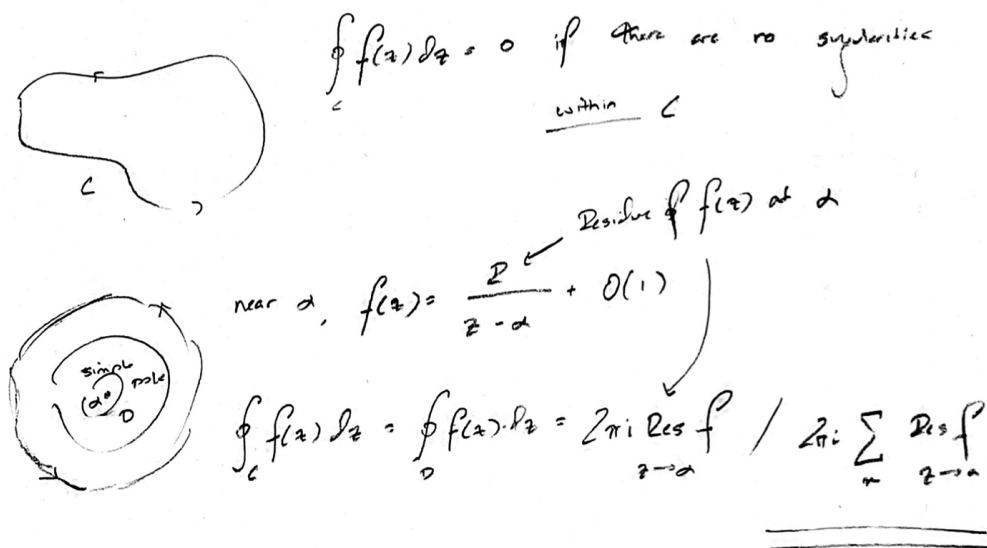 ∮_C f(z) dz = 0 if there are no singularities
within C
C
Residue of f(z) at α
near α, f(z) = R/(z - α) + O(1)
simple
pole
α
D
∮_C f(z) dz = ∮_D f(z) dz = 2πi Res_{z→α} f / 2πi ∑_n Res_{z→α} f